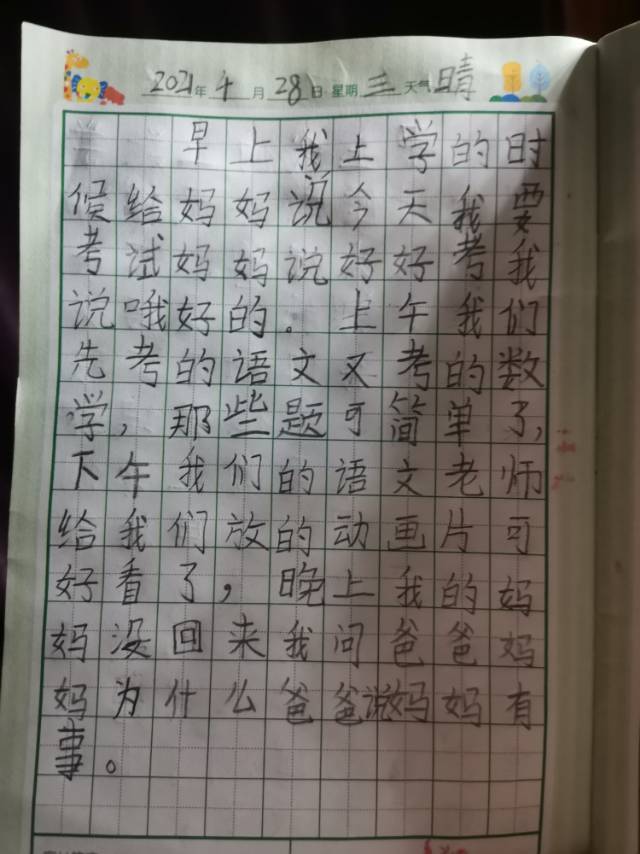 2021年十月28日 星期三 天气晴
早上我上学的时
候给妈妈说今天我要
考试妈妈说好好考我
说哦好的。上午我们
先考的语文又考的数
学，那些题可简单了，
下午我们的语文老师
给我们放的动画片可
好看了，晚上我的妈
妈没回来我问爸爸妈
妈为什么爸爸说妈妈有
事。